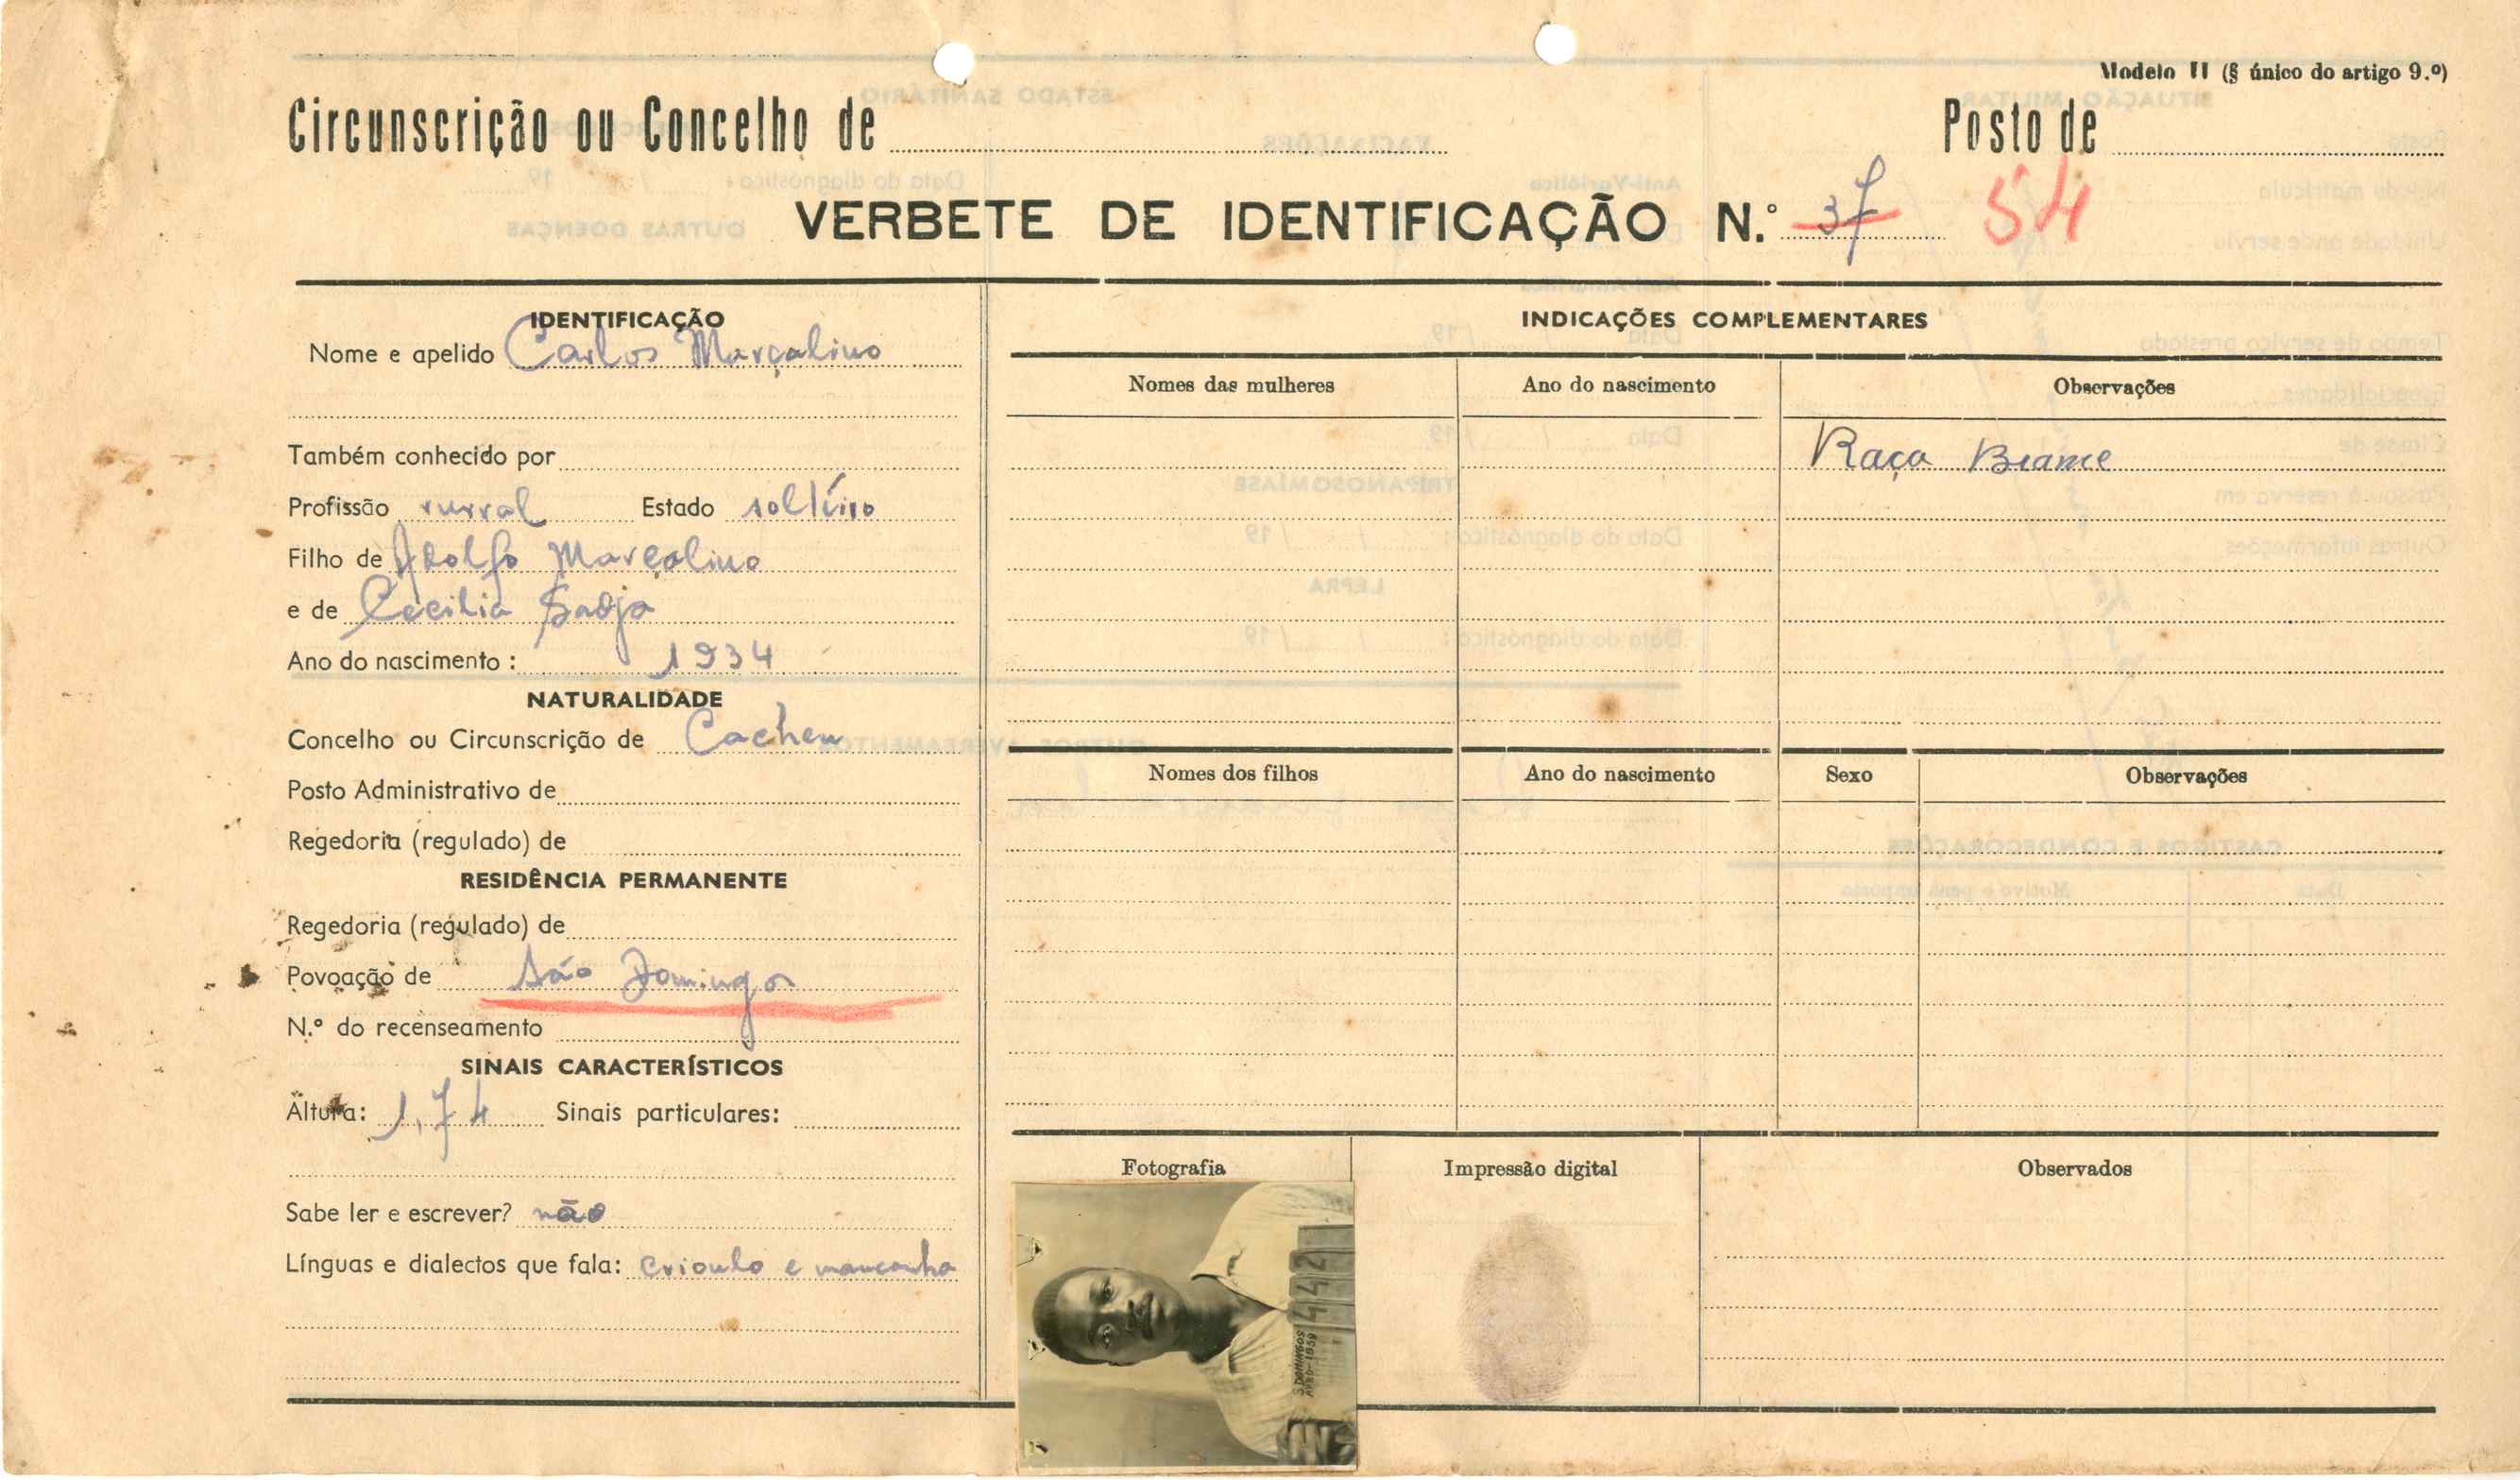 Modelo II (§ único do artigo 9.º)
Circunscrição ou Concelho de
Posto de
VERBETE DE IDENTIFICAÇÃO N.º 37 54
IDENTIFICAÇÃO
Nome e apelido Carlos Marçalino
Também conhecido por
Profissão rurral Estado soltéiro
Filho de Adolfo Marçalino
e de Cecilia Sadjo
Ano do nascimento : 1934
NATURALIDADE
Concelho ou Circunscrição de Cacheu
Posto Administrativo de
Regedoria (regulado) de
RESIDÊNCIA PERMANENTE
Regedoria (regulado) de
Povoação de São Domingos
N.º do recenseamento
SINAIS CARACTERÍSTICOS
Altura: 1,74 Sinais particulares:
Sabe ler e escrever? não
Línguas e dialectos que fala: crioulo e mancanha
INDICAÇÕES COMPLEMENTARES
Nomes das mulheres Ano do nascimento Observações
Raça Brame
Nomes dos filhos Ano do nascimento Sexo Observações
Fotografia Impressão digital Observados
442
S. DOMINGOS
1959